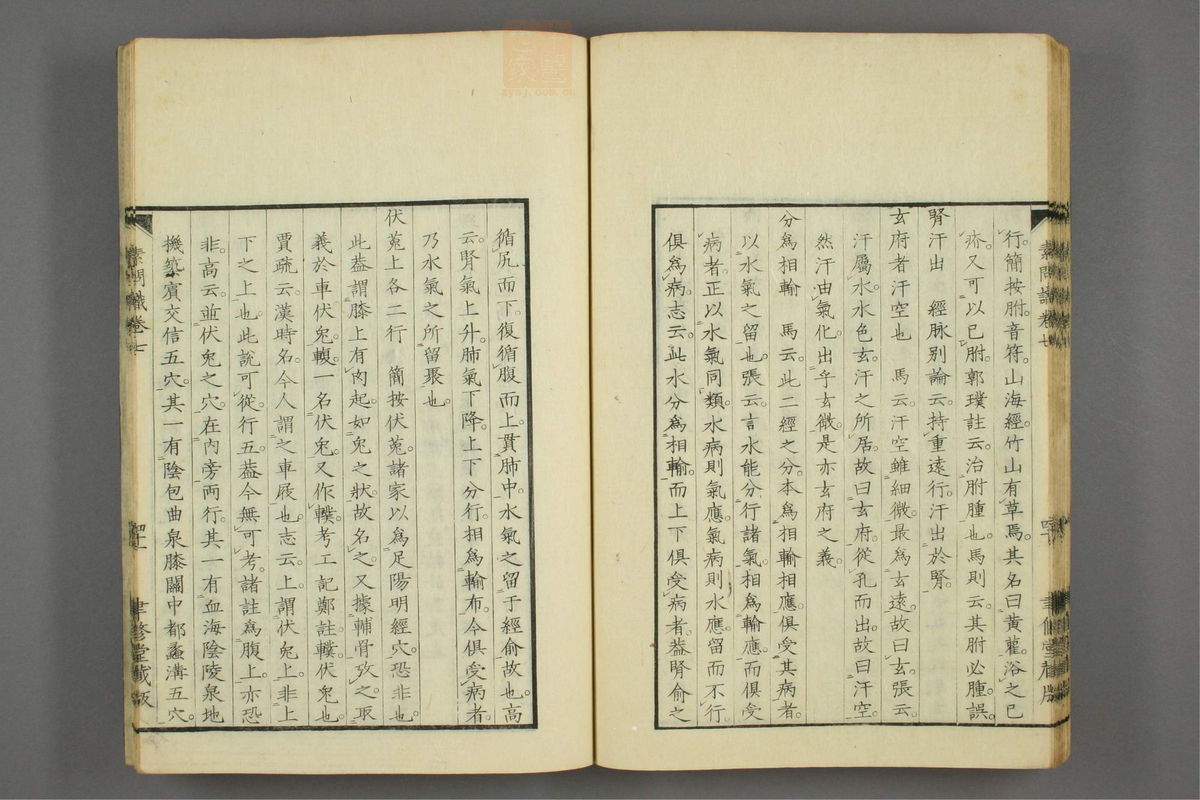 行。簡按胕。音符。山海經竹山有草焉。其名曰黃雚。浴之已
疥。又可以已胕。郭璞註云。治胕腫也。馬則云。其胕必腫。誤
腎汗出　經脉别論云。持重遠行。汗出於腎。
玄府者汗空也　馬云。汗空雖細微。最爲玄遠。故曰玄。張云。
汗屬水。水色玄。汗之所居。故曰玄府。從孔而出。故曰汗空
然汗由氣化。出乎玄微。是亦玄府之義。
分爲相輸　馬云。此二經之分。本爲相輸相應。俱受其病者。
以水氣之留也。張云。言水能分行諸氣。相爲輸應。而俱受
病者。正以水氣同類。水病則氣應。氣病則水應。留而不行。
俱爲病。志云。此水分爲相輸。而上下俱受病者。葢腎俞之
循尻而下。復循腹而上。貫肺中。水氣之留于經俞故也。高
云。腎氣上升。肺氣下降。上下分行。相爲輸布。今俱受病者
乃水氣之所留聚也。
伏菟上各二行　簡按伏菟。諸家以爲足陽明經穴。恐非也
此葢謂膝上有肉起如兔之狀。故名之。又據輔骨攷之。取
義於車伏兔。輹一名伏兔。又作轐。考工記鄭註。轐伏兔也
賈疏云。漢時名。今人謂之車屐也。志云。上。謂伏兔上。非上
下之上也。此說可從。行五。葢今無可考。諸註爲腹上。亦恐
非。高云。並伏兔之穴。在內旁兩行。其一有血海陰陵泉地
機築賓交信五穴。其一有陰包曲泉膝關中都蠡溝五穴。
素問識卷七
聿修堂藏版